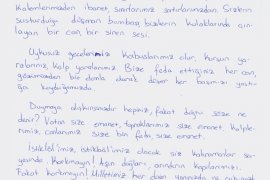 Kalemlerimizden ibaret, sınırlarımız satırlarımızdan. Sizlerin
susturduğu düşman bombası bizlerin kulaklarında çın-
layan bir can, bir siren sesi.
Uykusuz gecelerimiz kabuslarımız olur, kurşun ya-
ralarınız kalp yaralarımız. Bize feda ettiğiniz her can,
gözümüzden bir damla olarak düşer her başımızı yastığa
koyduğumuzda.
Duygaya alakınsınadır hepiniz, fakat doğru söze ne
denir? Vatan size emanet, topraklarımız size emanet kalple-
rimiz, canlarımız size bin feda, size emanet.
İstiklâl'imiz, istikbâl'imiz olacak siz kahramanlar sa-
yesinde. Korkmayın! Aşın dağları, arındırın kapılarınızı.
Fakat korkmayın! Milletiniz her daim yanınızda ve